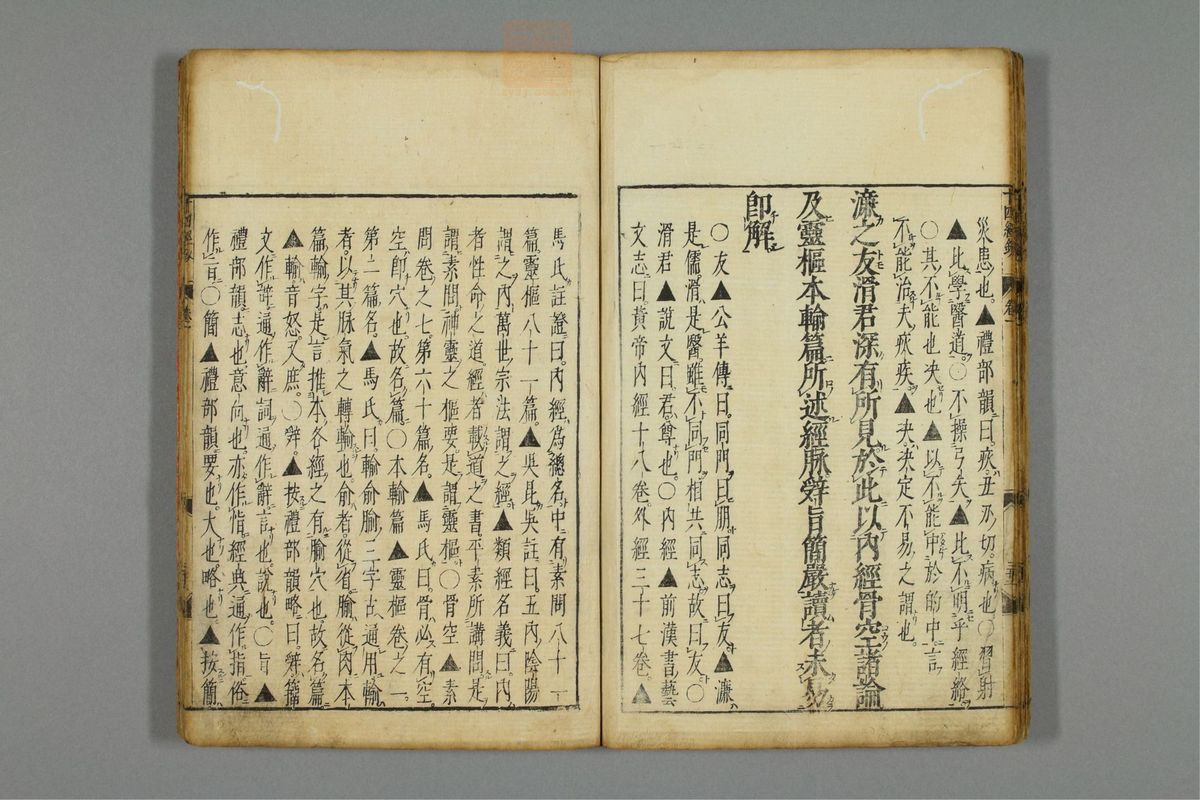 災患也。▲禮部韻曰。疾。丑刃切。病也。○習射
▲比學醫道。○不操弓矢▲比不明乎經絡
○其不能也決也▲以不能中於的中言
不能治夫疢疾▲决。决定不易之謂也。
濂之友滑君深有所見於此以內經骨空諸論
及靈樞本輸篇所述經脉辤旨簡嚴讀者未易
卽解
○友▲公羊傳曰。同門曰朋。同志曰友▲濂
是儒。滑是醫。雖不同門。相共同志。故曰友○
滑君▲說文曰。君。尊也。○內經▲前漢書藝
文志曰。黃帝內經十八卷。外經三十七卷。▲
馬氏註證曰。內經。爲總名。中有素問八十一
篇。靈樞八十一篇。▲吳昆。吳註曰。五內陰陽
謂之內。萬世宗法謂之經▲類經名義曰。內
者性命之道。經者載道之書。平素所講問。是
謂素問。神靈之樞要。是謂靈樞○骨空▲素
問卷之七。第六十篇名。▲馬氏曰。骨必有空。
空卽穴也。故名篇○本輸篇▲靈樞卷之一。
第二篇名。▲馬氏曰。輸俞腧三字。古通用。輸
者。以其脉氣之轉輸也。俞者。從省。腧從肉。本
篇輸字。是言推本各經之有腧穴也。故名篇
▲輸音怒。又庶。○辤。▲按禮部韻略曰。辤。籀
文作辝。通作辭詞。通作辭。言也。說也。○旨▲
禮部韻。志也。意向也。亦作恉。經典通作指。俗
作㫖。○簡▲禮部韻。要也。大也。略也▲按簡